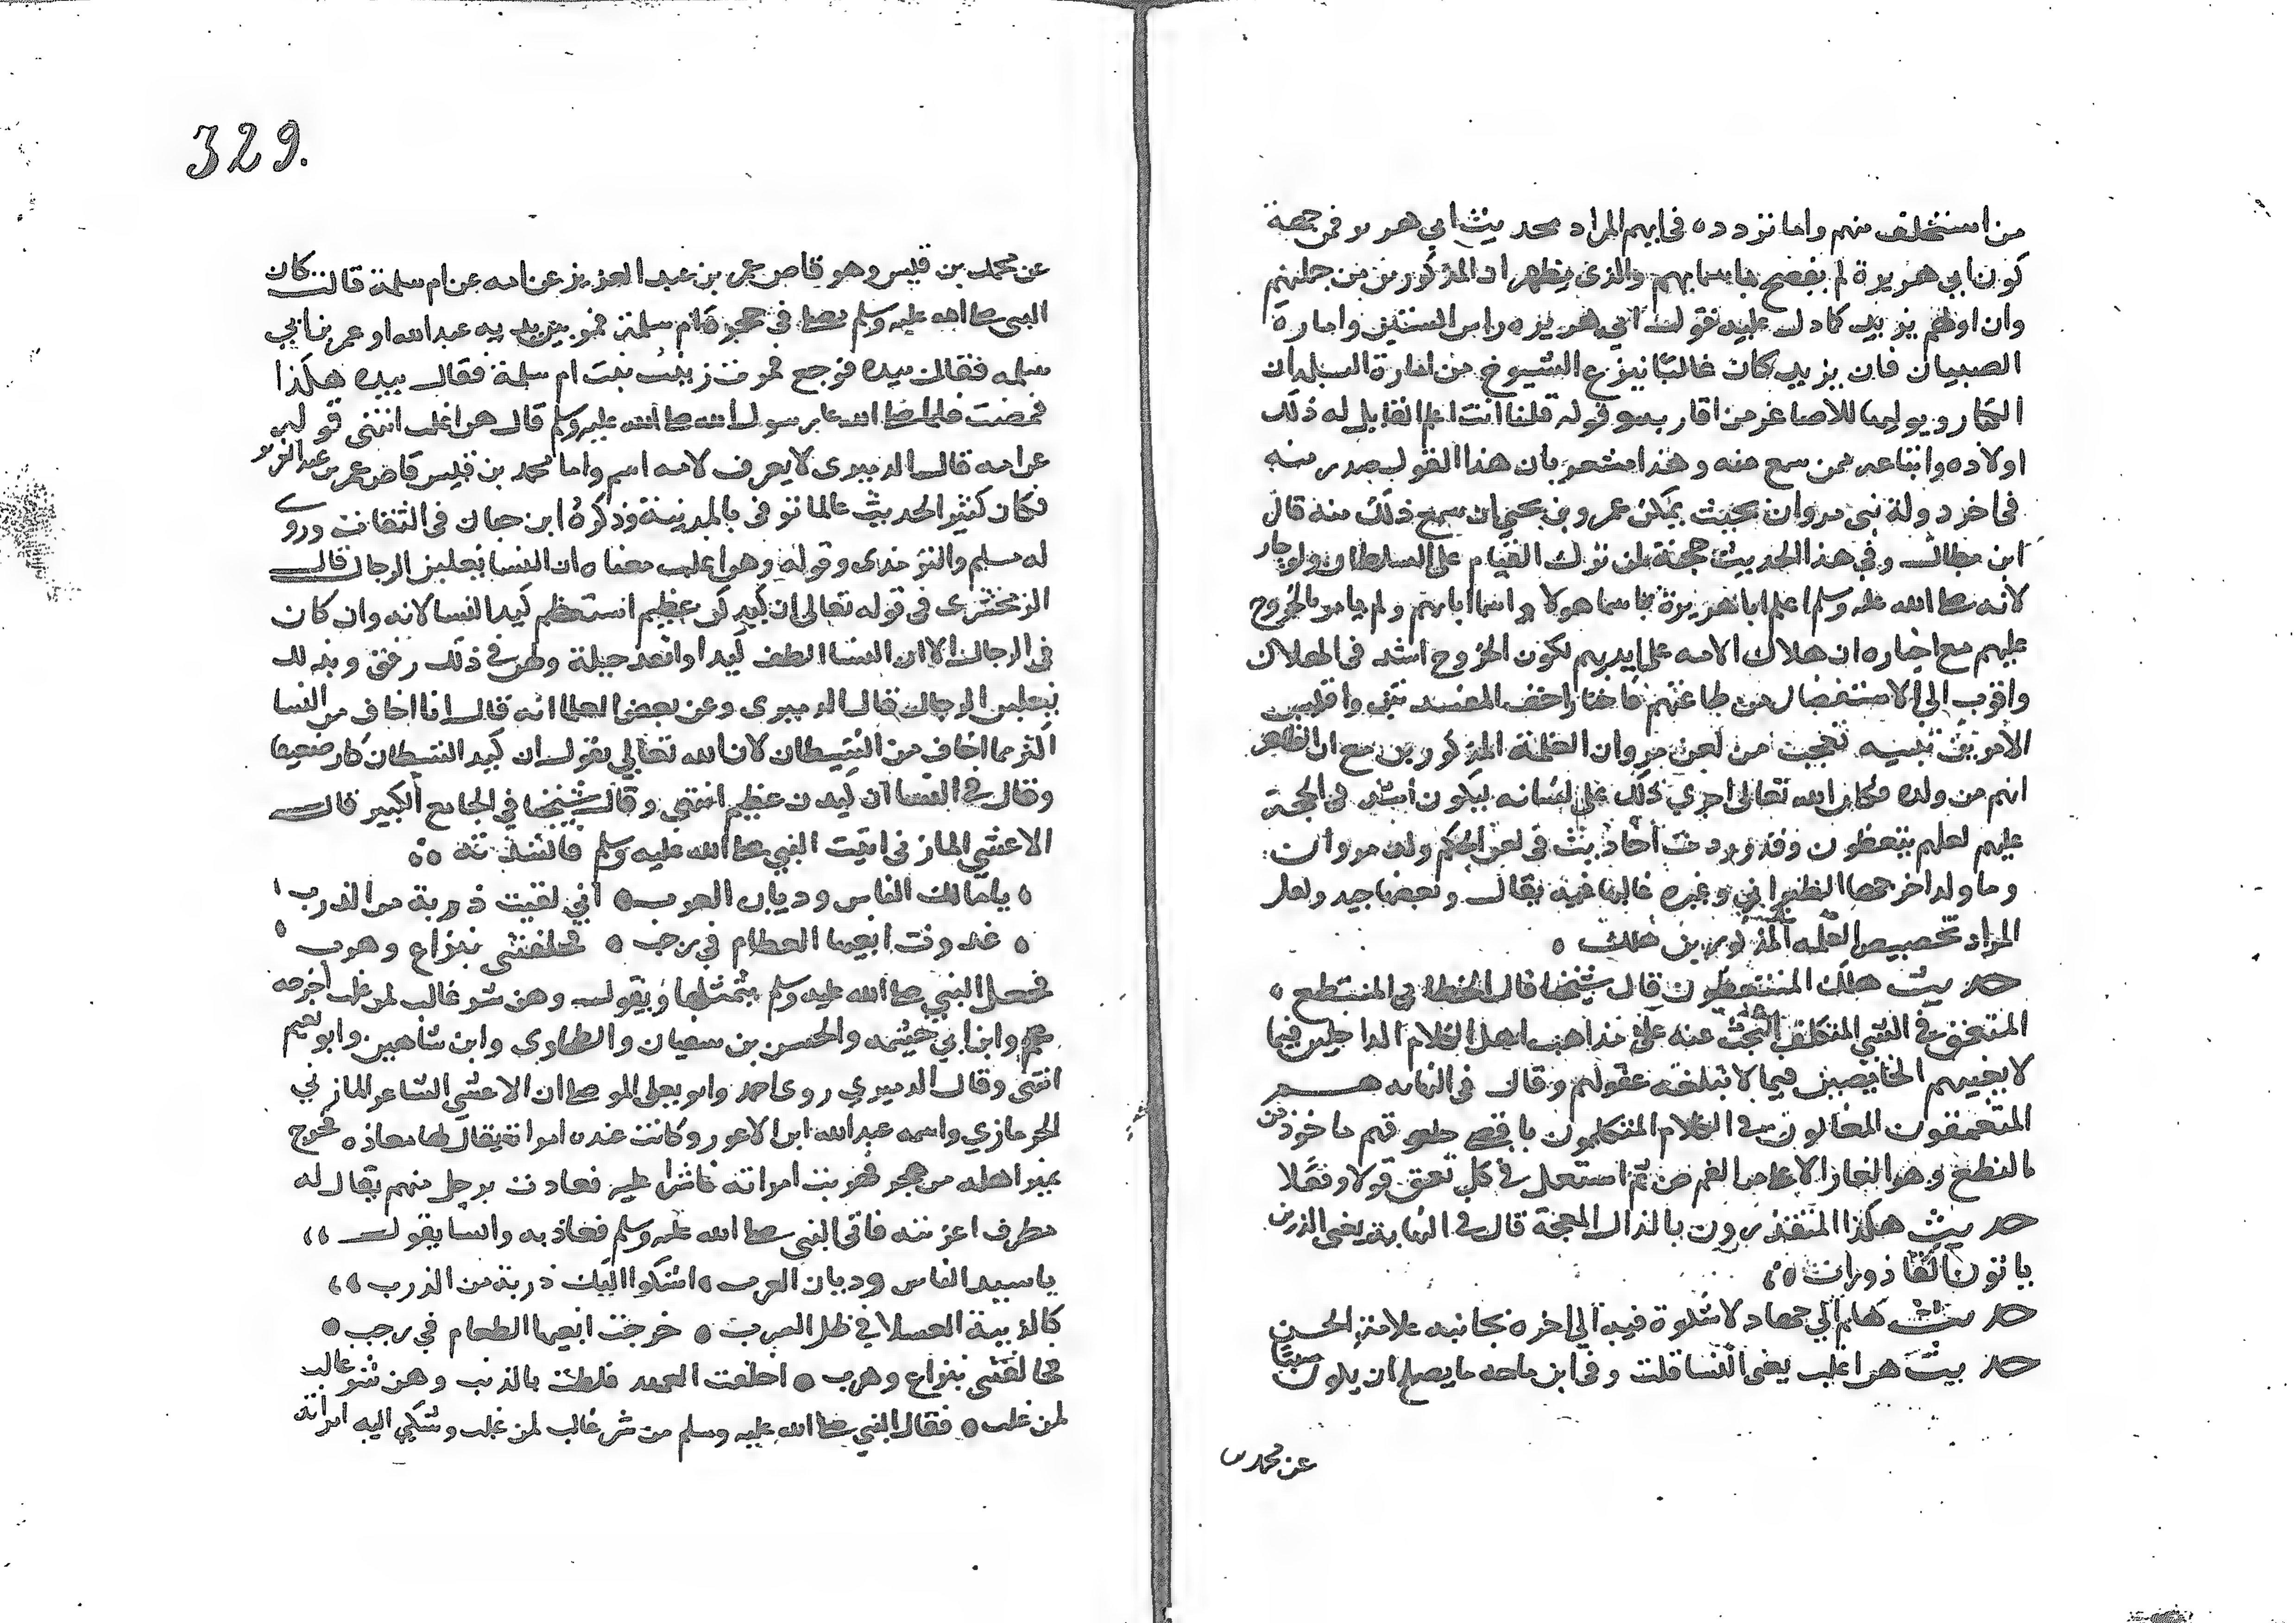 من استخلف منهم واما تردده في ايهم المراد بحديث ابي هريرة فمن جهة
كون ابي هريرة لم يفصح باسمايهم والذي يظهر ان المذكورين من جملتهم
وان اولهم يزيد كما دل عليه قول ابي هريرة راس الستين وامارة
الصبيان فان يزيد كان غالبا ينزع الشيوخ من امارة البلدان
الكبار ويوليها للاصاغر من اقاربه قوله قلنا انت اعلم القايل له ذلك
اولاده واتباعه ممن سمع منه وهذا مشعر بان هذا القول صدر منه
في اخر دولة بني مروان بحيث يمكن عمرو بن يحيي ان سمع ذلك منه قال
ابن بطال وفي هذا الحديث حجة لمن ترك القيام على السلطان ولو جار
لانه صلى الله عليه وسلم اعلم ابا هريرة باسما هولا واسما ابايهم ولم يامره بالخروج
عليهم مع اخباره ان هلاك الامه على ايديهم لكون الخروج اشد في الهلاك
واقرب الى الاستيصال من طاعتهم فاختار اخف المفسدتين وايسر
الامرين تنبيه تعجب من لعن مروان الغلمة المذكورين مع ان الظاهر
انهم من ولده فكان الله تعالى اجري ذلك على لسانه ليكون اشد في الحجة
عليهم لعلهم يتعظون وقد وردت احاديث في لعن الحكم والد مروان
وما ولد اخرجها الطبراني وغيره غالبها فيه مقال وبعضها جيد ولعل
المراد تخصيص الغلمه المذكورين بذلك
حديث هلك المتنطعون قال شيخنا قال الخطابي المتنطع
المتعمق في الشي المتكلف البحث عنه على مذاهب اهل الكلام الداخلين فيما
لا يعنيهم الخايضين فيما لا تبلغه عقولهم وقال في النهايه هم
المتعمقون المغالون في الكلام المتكلمون باقصى حلوقهم ماخوذ من
النطع وهو الغار الاعلى من الفم ثم استعمل في كل تعمق قولا وفعلا
حديث هلك المتقذرون بالذال المعجمة قال في النهاية يعني الذين
ياتون القاذورات
حديث هلم الي جهاد لا شوكة فيه الى اخره بجانبه علامة الحسن
حديث هن اغلب يعني النسا قلت وفي ابن ماجه ما يصلح ان يكون سببا
عن محمد بن
329.
عن محمد بن قيس وهو قاص عمر بن عبد العزيز عن امه عن ام سلمة قالت كان
النبي صلى الله عليه وسلم يصلي في حجرة ام سلمة فمر بين يديه عبد الله او عمر بن ابي
سلمه فقال بيده فرجع فمرت زينب بنت ام سلمة فقال بيده هكذا
فمضت فلما صلى الله عليه رسول الله صلى الله عليه وسلم قال هن اغلب انتهى قوله
عن امه قال الدميري لا يعرف لامه اسم واما محمد بن قيس قاص عمر بن عبد العزيز
فكان كثير الحديث عالما توفى بالمدينة وذكره ابن حبان في الثقات وروى
له مسلم والترمذى وقوله وهن اغلب معناه ان النسا يغلبن الرجال قال
الزمخشرى في قوله تعالى ان كيدكن عظيم استعظم كيد النسا لانه وان كان
في الرجال الا ان النسا الطف كيدا وانفذ حيلة ولهن في ذلك رفق وبذلك
يغلبن الرجال قال الدميرى وعن بعض العلما انه قال انا اخاف من النسا
اكثر مما اخاف من الشيطان لان الله تعالى يقول ان كيد الشيطان كان ضعيفا
وقال في النسا ان كيدكن عظيم انتهى وقال شيخنا في الجامع الكبير قال
الاعشي المازني اتيت النبي صلى الله عليه وسلم فانشدته
يا مالك الناس وديان العرب اني لقيت ذربة من الذرب
غدوت ابغيها الطعام في رجب فخلفتني بنزاع وهرب
فجعل النبي صلى الله عليه وسلم يتمثلها ويقول وهن شر غالب لمن غلب اخرجه
عم وابن ابي خيثمه والحسن بن سفيان والطحاوي وابن شاهين وابو نعيم
انتهى وقال الدميري روى احمد وابو يعلى الموصلي ان الاعشى الشاعر المازني
الحرمازي واسمه عبد الله ابن الاعور وكانت عنده امراة يقال لها معاذه فخرج
يمير اهله من هجر فهربت امراته ناشزا عليه فعاذت برجل منهم يقال له
مطرف اعز منه فاتى النبي صلى الله عليه وسلم فعاذ به وانشا يقول
يا سيد الناس وديان العرب اشكوا اليك ذربة من الذرب
كالذيبة العسلا في ظل السرب خرجت ابغيها الطعام في رجب
فخالفتني بنزاع وهرب اخلفت العهد ولطت بالذنب وهن شر غالب
لمن غلب فقال النبي صلى الله عليه وسلم من شر غالب لمن غلب وشكى اليه امراته